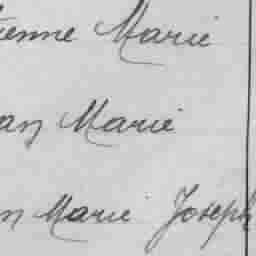 ienne Marie
an Marie
n Marie Joseph